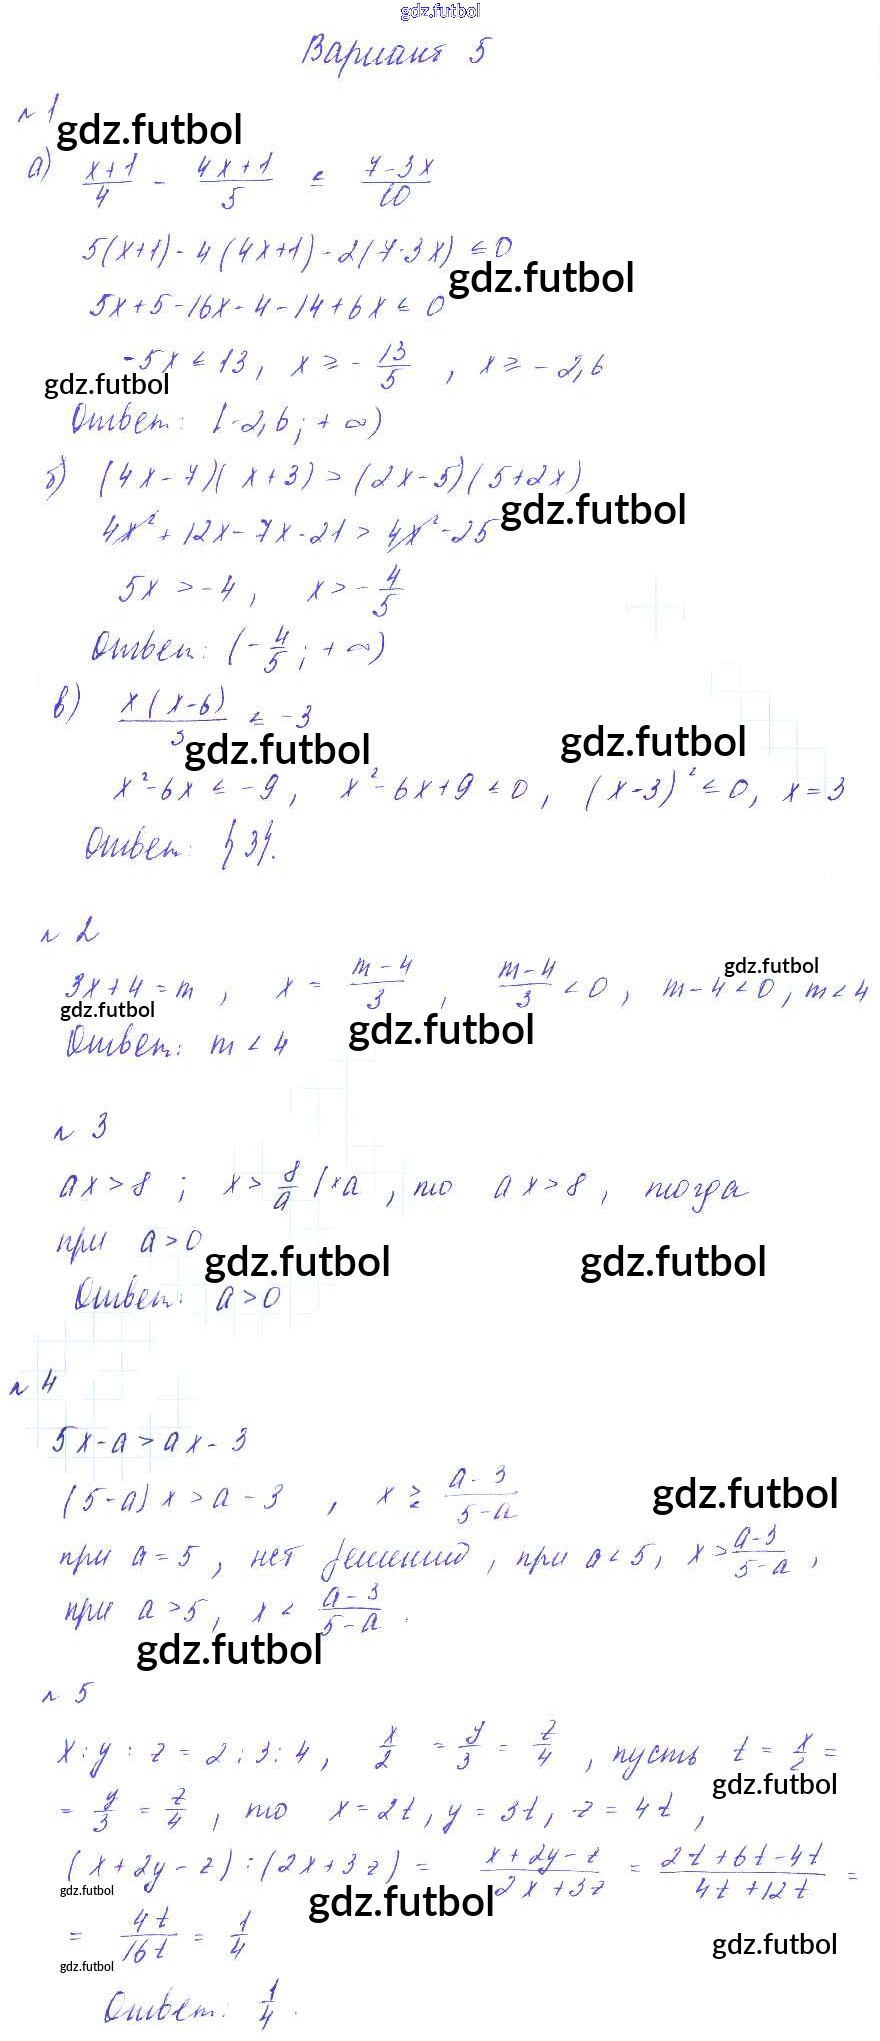 gdz.futbol
Вариант 5
№ 1
gdz.futbol
а) (x+1)/4 - (4x+1)/5 ≤ (7-3x)/10
5(x+1) - 4(4x+1) - 2(7-3x) ≤ 0
gdz.futbol
5x+5-16x-4-14+6x ≤ 0
-5x ≤ 13, x ≥ - 13/5, x ≥ -2,6
gdz.futbol
Ответ: [-2,6; +∞)
б) (4x-7)(x+3) > (2x-5)(5+2x)
gdz.futbol
4x² + 12x - 7x - 21 > 4x² - 25
5x > -4, x > - 4/5
Ответ: (- 4/5; +∞)
в) x(x-6)/3 ≤ -3
gdz.futbol gdz.futbol
x²-6x ≤ -9, x²-6x+9 ≤ 0, (x-3)² ≤ 0, x=3
Ответ: {3}.
№ 2
gdz.futbol
3x+4=m, x = (m-4)/3, (m-4)/3 < 0, m-4<0, m<4
gdz.futbol gdz.futbol
Ответ: m < 4
№ 3
ax>8; x > 8/a |×a, то ax>8, тогда
при a>0
gdz.futbol gdz.futbol
Ответ: a>0
№ 4
5x-a > ax-3
(5-a)x > a-3, x ≥ (a-3)/(5-a)
gdz.futbol
при a=5, нет решений, при a<5, x > (a-3)/(5-a),
при a>5, x < (a-3)/(5-a).
gdz.futbol
№ 5
x:y:z = 2:3:4, x/2 = y/3 = z/4, пусть t = x/2 =
gdz.futbol
= y/3 = z/4, то x=2t, y=3t, z=4t,
(x+2y-z):(2x+3z) = (x+2y-z)/(2x+3z) = (2t+6t-4t)/(4t+12t) =
gdz.futbol gdz.futbol
= 4t/16t = 1/4
gdz.futbol
gdz.futbol
Ответ: 1/4.